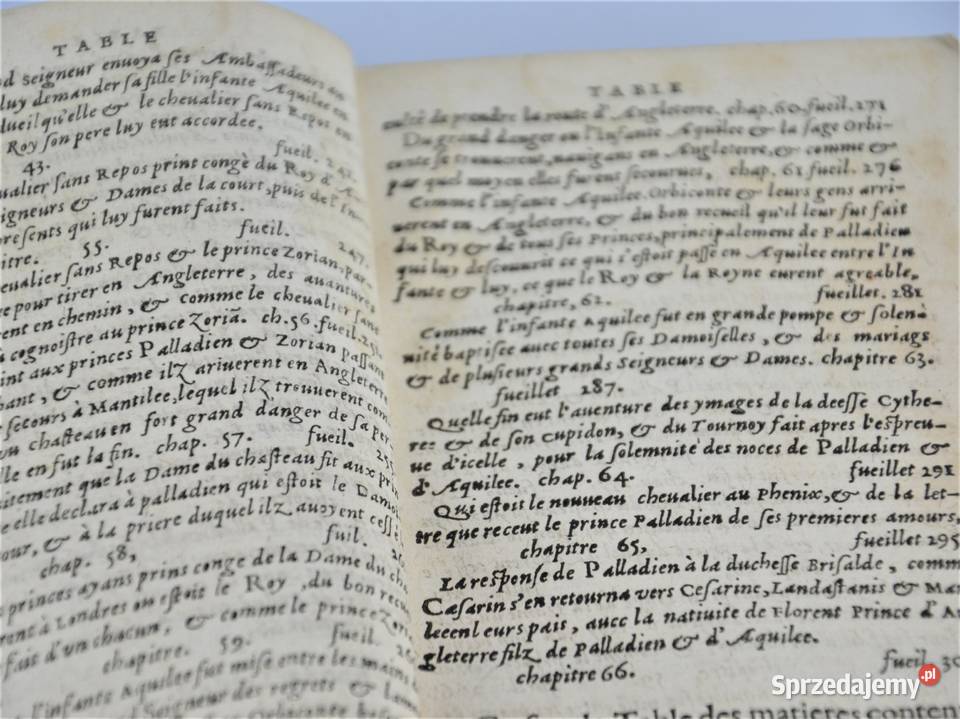 TABLE
Seigneur enuoya ſes Ambaſſadeurs
luy demander ſa fille l'infante Aquilee
dueil qu'elle & le cheualier ſans Repos
Roy ſon pere luy eut accordee.
43. fueil.
ſans Repos print congè du Roy
& Dames de la court, puis de
preſents qui luy furent faits.
55. fueil. 247.
ſans Repos & le prince Zorian,
pour tirer en Angleterre, des auantures
en chemin, & comme le cheualier ſans
cognoiſtre au prince Zoriã. ch. 56. fueil.
aux princes Palladien & Zorian
, & comme ilz ariuerent en Angleterre
ſecours à Mantilee, lequel ilz trouuerent
chaſteau en fort grand danger de ſa
en fut la fin. chap. 57. fueil.
que la Dame du chaſteau fit aux
elle declara à palladien qui eſtoit le
, & à la priere duquel ilz auoyent ceſſé
chap. 58, fuil.
princes ayans prins conge de la Dame du
à Londres ou eſtoit le Roy, du bon
fait d'un chacun, & comme le prince
chapitre. 59. fueil.
l'infante Aquilee fut miſe entre les mains
Seigneur des regrets & 
TABLE
de prendre la route d'Angleterre, chap. 60. fueil. 271
Du grand danger ou l'Infante Aquilee & la ſage Orbi-
conte ſe trouuerent, nauigans en Angleterre, & comme &
par quel moyen elles furent ſecourues, chap. 61 fueil. 276
Comme l'infante Aquilee, Orbiconte & leurs gens arri-
uerent en Angleterre, & du bon recueil qu'il leur fut fait
du Roy & de tous ſes Princes, principalement de Palladien
qui luy deſcouurit ce qui s'eſtoit paſſé en Aquilee entre l'In
fante & luy, ce que le Roy & la Royne eurent agreable,
chapitre, 62. fueillet. 281
Comme l'infante Aquilee fut en grande pompe & ſolen-
nité baptiſee auec toutes ſes Damoiſelles, & des mariages
& de pluſieurs grands Seigneurs & Dames. chapitre 63.
fueillet 187.
Quelle fin eut l'auenture des ymages de la deeſſe Cythe-
ree & de ſon Cupidon, & du Tournoy fait apres l'eſpreu-
ue d'icelle, pour la ſolemnité des noces de Palladien &
d'Aquilee. chap. 64. fueillet 291
Qui eſtoit le nouueau cheualier au Phenix, & de la let-
tre que receut le prince Palladien de ſes premieres amours,
chapitre 65, fueillet 295
La reſponſe de Palladien à la ducheſſe Briſalde, comme
Cæſarin s'en retourna vers Ceſarine, Landaſtanis &
leurs pais, auec la natiuite de Florent Prince d'
gleterre filz de Palladien & d'Aquilee.
chapitre 66. fueil.
Table des matieres
Sprzedajemy.pl